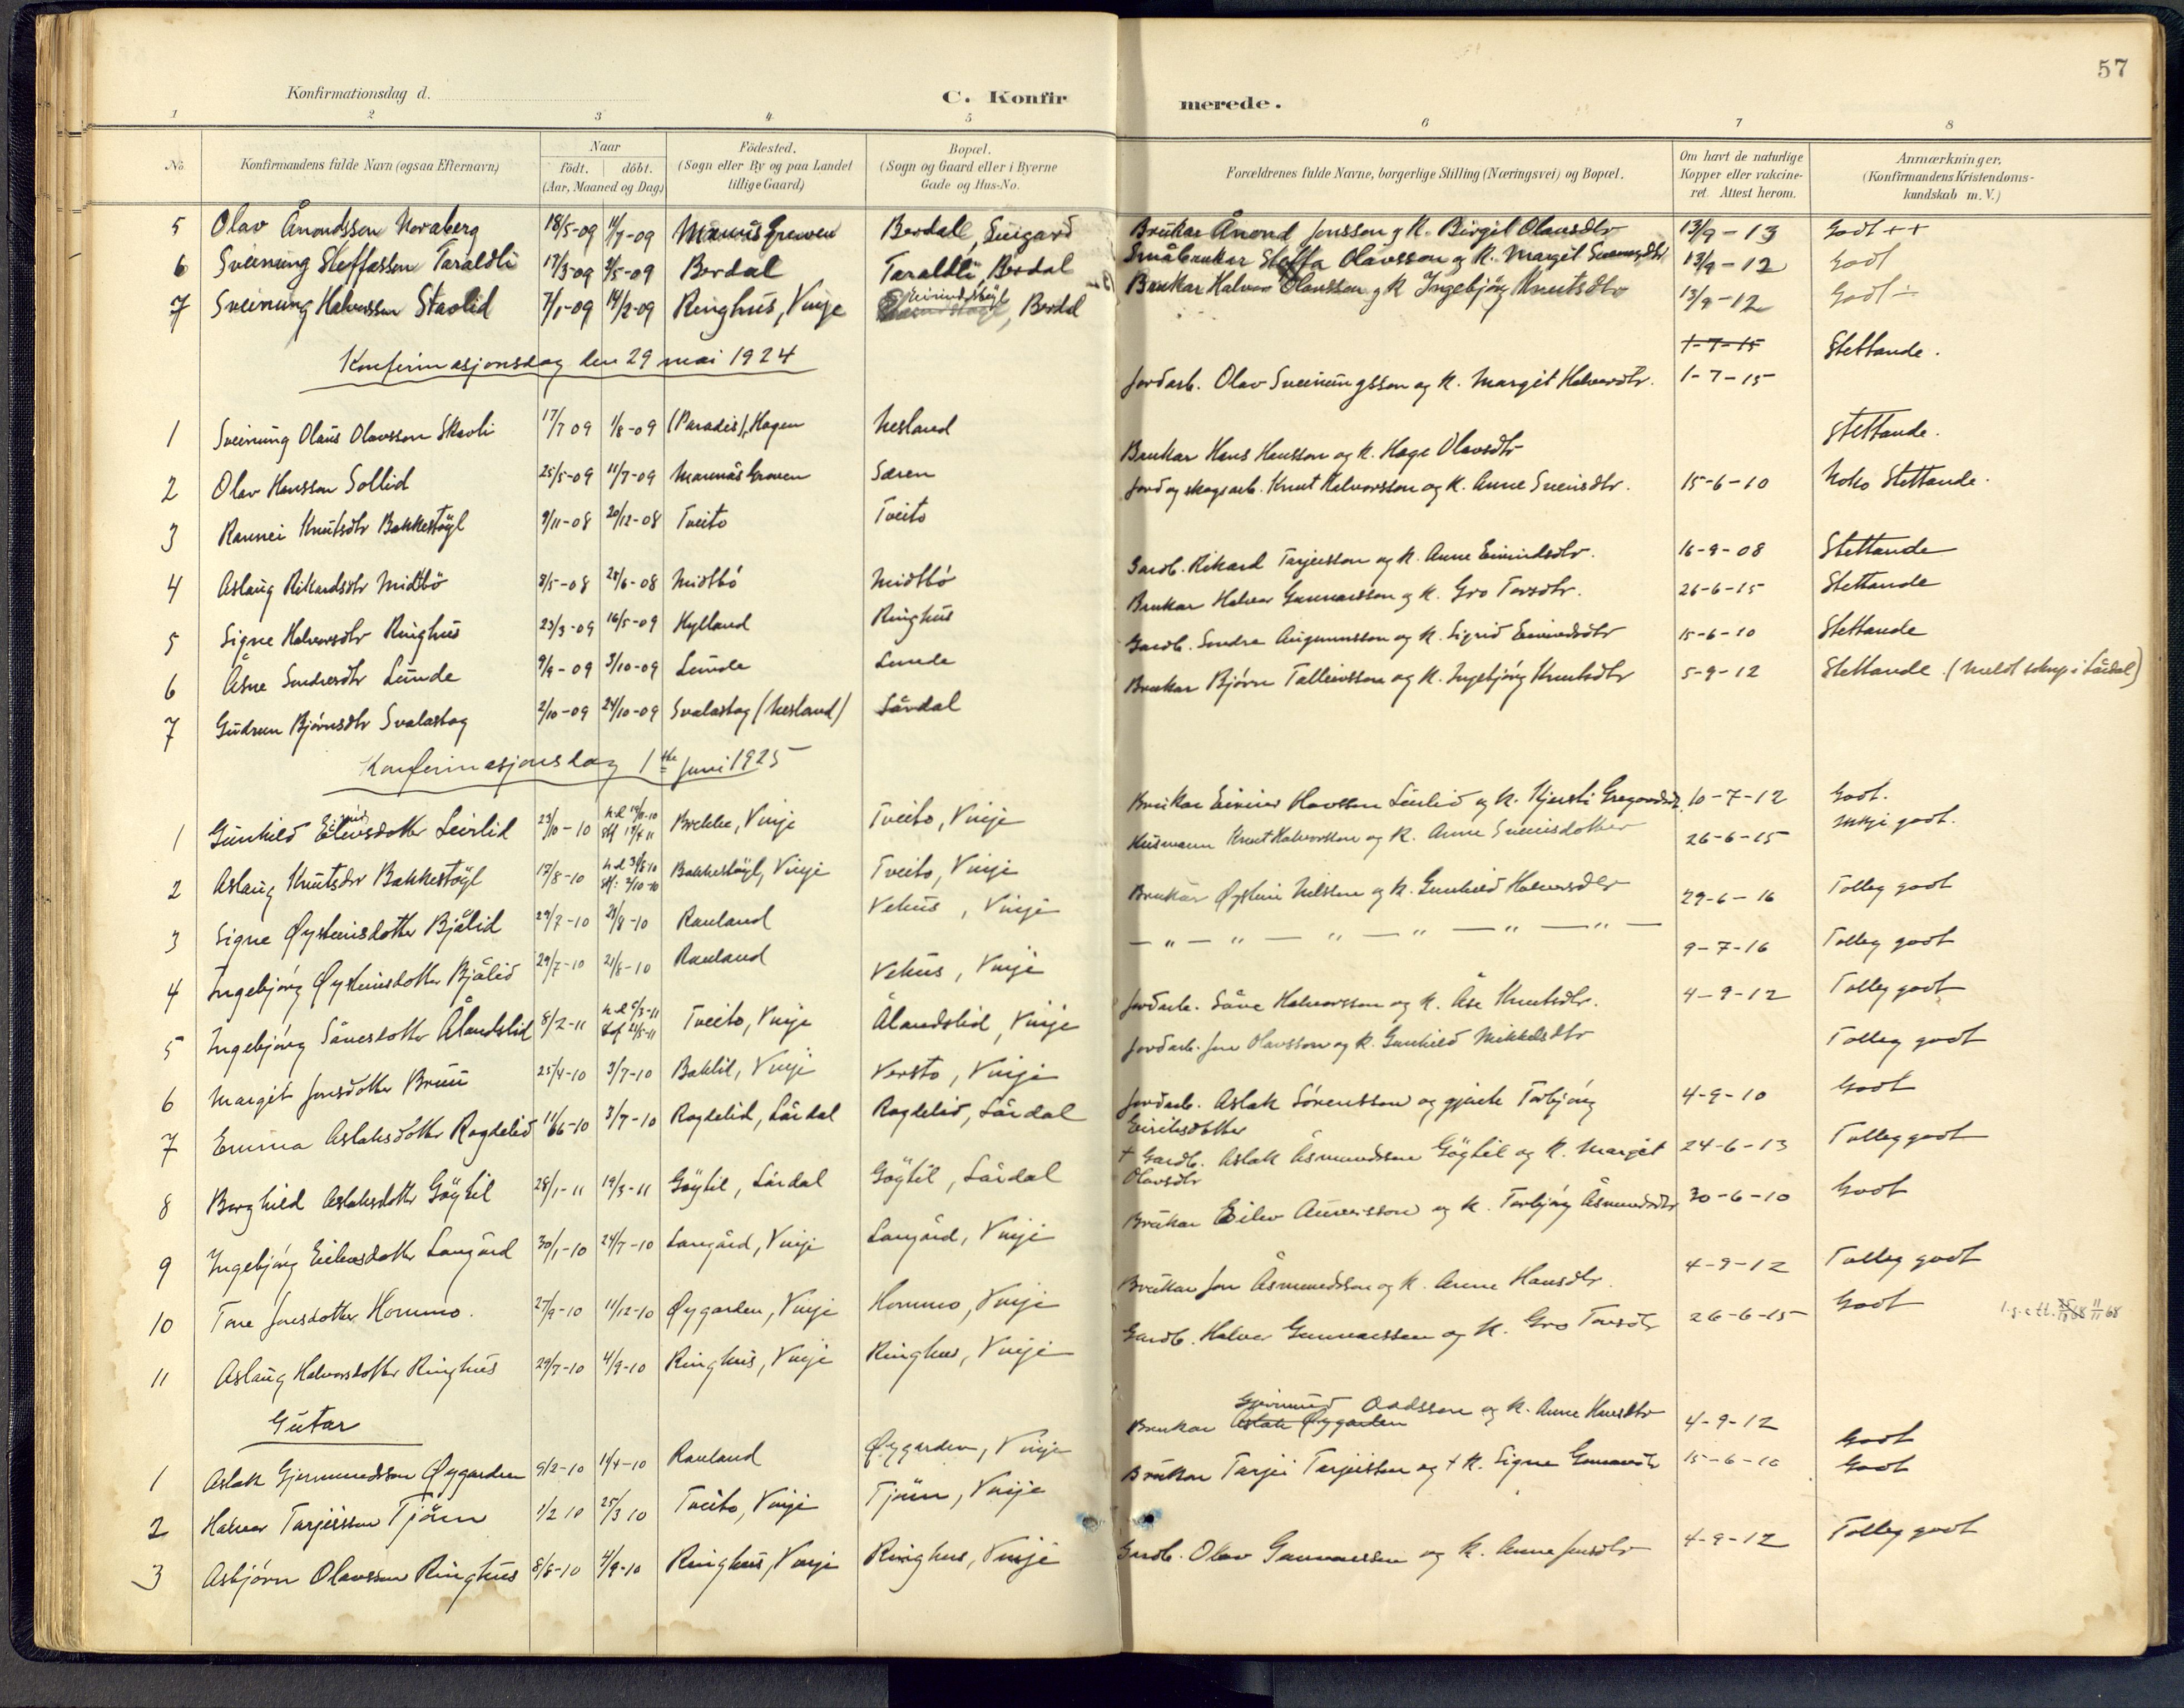 57
Konfirmationsdag d.
C. Konfirmerede.
1 2 3 4 5 6 7 8
No. Konfirmandens fulde Navn (ogsaa Efternavn) Naar födt. döbt. (Aar, Maaned og Dag) Födested. (Sogn eller By og paa Landet tillige Gaard) Bopæl. (Sogn og Gaard eller i Byerne Gade og Hus-No. Forældrenes fulde Navne, borgerlige Stilling (Næringsvei) og Bopæl. Om havt de naturlige Kopper eller vakcineret. Attest herom. Anmærkninger. (Konfirmandens Kristendomskundskab m. V.)
5 Olav Ånondsson Noraberg 18/5-09 11/7-09 Berdal, Brukar Ånond Jonsson og K. Birgit Olausdtr 13/9-13 Godt ++
6 Sveinung Steffasson Taraldli 17/3-09 2/5-09 Berdal Taraldli Berdal Småbrukar Steffa Olavsson og K. Margit 13/9-12 Godt
7 Sveinung Halvorsson Staolid 7/1-09 14/2-09 Ringhus, Vinje Berdal Brukar Halvor Olavsson og K Ingebjörg Knutsdtr 13/9-12 Godt ÷
Konfirmasjonsdag den 29 mai 1924
1 Sveinung Olaus Olavsson Skavli 17/7 09 1/8-09 (Paradis), Hagen Nesland Jordarb. Olav Sveinungsson og K. Margit Halvorsdtr. 1-7-15 1-7-15 Stettande.
2 Olav Hansson Sollid 25/5-09 11/7-09 Særen Brukar Hans Hansson og K. Hage Olavsdtr Stettande.
3 Rannei Knutsdtr Bakkestøyl 9/11-08 20/12-08 Tveito Tveito Jord og skogsarb. Knut Halvorsson og K. Anne Sveinsdtr. 15-6-10 Noko Stettande.
4 Aslaug Rikardsdtr Midtbö 8/5-08 28/6-08 Midtbö Midtbö Gardb. Rikard Tarjeisson og K. Anne Eivindsdtr. 16-9-08 Stettande
5 Signe Halvorsdtr Ringhus 23/3-09 16/5-09 Hylland Ringhus Brukar Halvor Gunnarsson og K. Gro Torsdtr. 26-6-15 Stettande
6 Åsne Sondresdtr Lunde 9/9-09 3/10-09 Lunde Lunde Gardb. Sondre Augunnsson og K. Sigrid Eivindsdtr 15-6-10 Stettande
7 Gudrun Bjørnsdtr Svalastog 2/10-09 24/10-09 Svalastog (Nesland) Lårdal Brukar Bjørn Talleivsson og K. Ingebjörg Knutsdtr 5-9-12 Stettande. (Meldt i Lårdal)
Konfirmasjonsdag 1ste juni 1925
1 Gunhild Eivindsdotter Leirlid 23/10-10 Brekke, Vinje Tveito, Vinje Brukar Eivind Leirlid og K. Kjersti Gregardsdtr 10-7-12 Godt.
2 Aslaug Knutsdtr Bakkestøyl 17/8-10 Bakkestøyl, Vinje Tveito, Vinje Husmann Knut Halvorsson og K. Anne Sveinsdotter 26-6-15 Mykje godt.
3 Signe Øysteinsdotter Bjålid 29/7-10 21/8-10 Rauland Vehus, Vinje Brukar Øystein Nilsson og K. Gunhild Halvorsdtr 29-6-16 Tolleg godt
4 Ingebjörg Øysteinsdotter Bjålid 29/7-10 21/8-10 Rauland Vehus, Vinje — " — " — " — " — " — " — 9-7-16 Tolleg godt
5 Ingebjörg Såvesdotter Ålandslid 8/2-11 Tveito, Vinje Ålandslid, Vinje Jordarb. Såve Halvorsson og K. Åse Knutsdtr. 4-9-12 Tolleg godt
6 Margit Jonsdotter Bruu 25/4-10 3/7-10 Baklil, Vinje Versto, Vinje Jordarb. Jon Olavsson og K. Gunhild Mikkelsdtr Tolleg godt
7 Emma Aslaksdotter Rogdelid 11/6-10 3/7-10 Rogdelid, Lårdal Rogdelid, Lårdal Jordarb. Aslak Sörensson og gjente Torbjörg Eiriksdotter 4-9-10 Godt
8 Borghild Aslaksdotter Göytil 28/1-11 19/3-11 Göytil, Lårdal Göytil, Lårdal + Gardb. Aslak Åsmundsson Göytil og K. Margit Olavsdtr 24-6-13 Tolleg godt
9 Ingebjörg Eilevsdotter Langård 30/1-10 24/7-10 Langård, Vinje Langård, Vinje Brukar Eilev og K. Torbjörg Åsmundsdtr 30-6-10 Godt
10 Tone Jonsdotter Hommo. 27/9-10 11/12-10 Øygarden, Vinje Hommo, Vinje Brukar Jon Åsmundsson og K. Anne Hansdtr. 4-9-12 Tolleg godt
11 Aslaug Halvorsdotter Ringhus 29/7-10 4/9-10 Ringhus, Vinje Ringhus, Vinje Gardb. Halvor Gunnarsson og K. Gro Torsdtr 26-6-15 Godt
Gutar
1 Aslak Gjermundsson Øygarden 9/2-10 11/4-10 Rauland Øygarden, Vinje Brukar Aslak Øygarden Gjermund Oddsson og K. Anne 4-9-12 Godt
2 Halvor Tarjeisson Tjönn 1/2 10 25/3 10 Tveito, Vinje Tjönn, Vinje Brukar Tarjei Tarjeisson og + K. Signe Gunnarsdtr 15-6-10 Godt
3 Asbjörn Olavsson Ringhus 8/8-10 4/9-10 Ringhus, Vinje Ringhus, Vinje Gardb. Olav Gunnarsson og K. Anne Jonsdtr 4-9-12 Tolleg godt